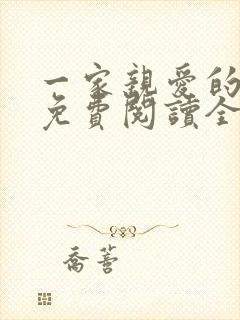 一家親愛的
免費閱讀全
喬蕶